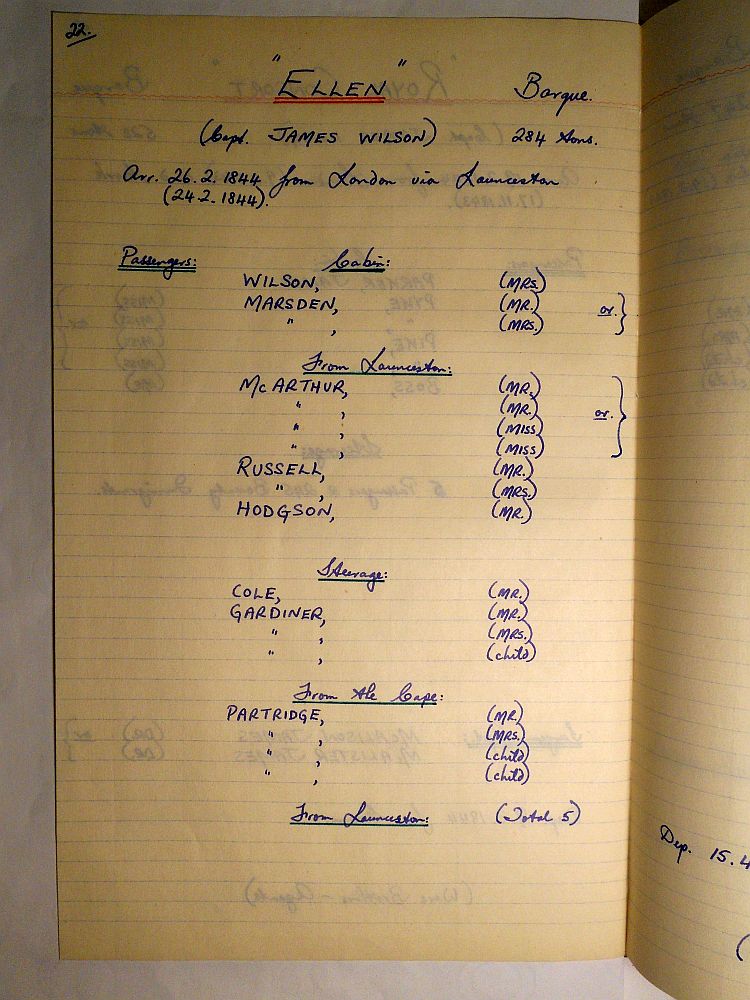 22.
"ELLEN" Barque.
(Capt. JAMES WILSON) 284 tons.
Arr. 26.2.1844 from London via Launceston
(24.2.1844).
Passengers: Cabin:
WILSON, (MRS.)
MARSDEN, (MR.)
" , (MRS.) or. }
From Launceston:
McARTHUR, (MR.)
" , (MR.)
" , (MISS) or. }
" , (MISS)
RUSSELL, (MR.)
" , (MRS.)
HODGSON, (MR.)
Steerage:
COLE, (MR.)
GARDINER, (MR.)
" , (MRS.)
" , (child)
From the Cape:
PARTRIDGE, (MR.)
" , (MRS.)
" , (child)
" , (child)
From Launceston: (Total 5)
Dep. 15.4